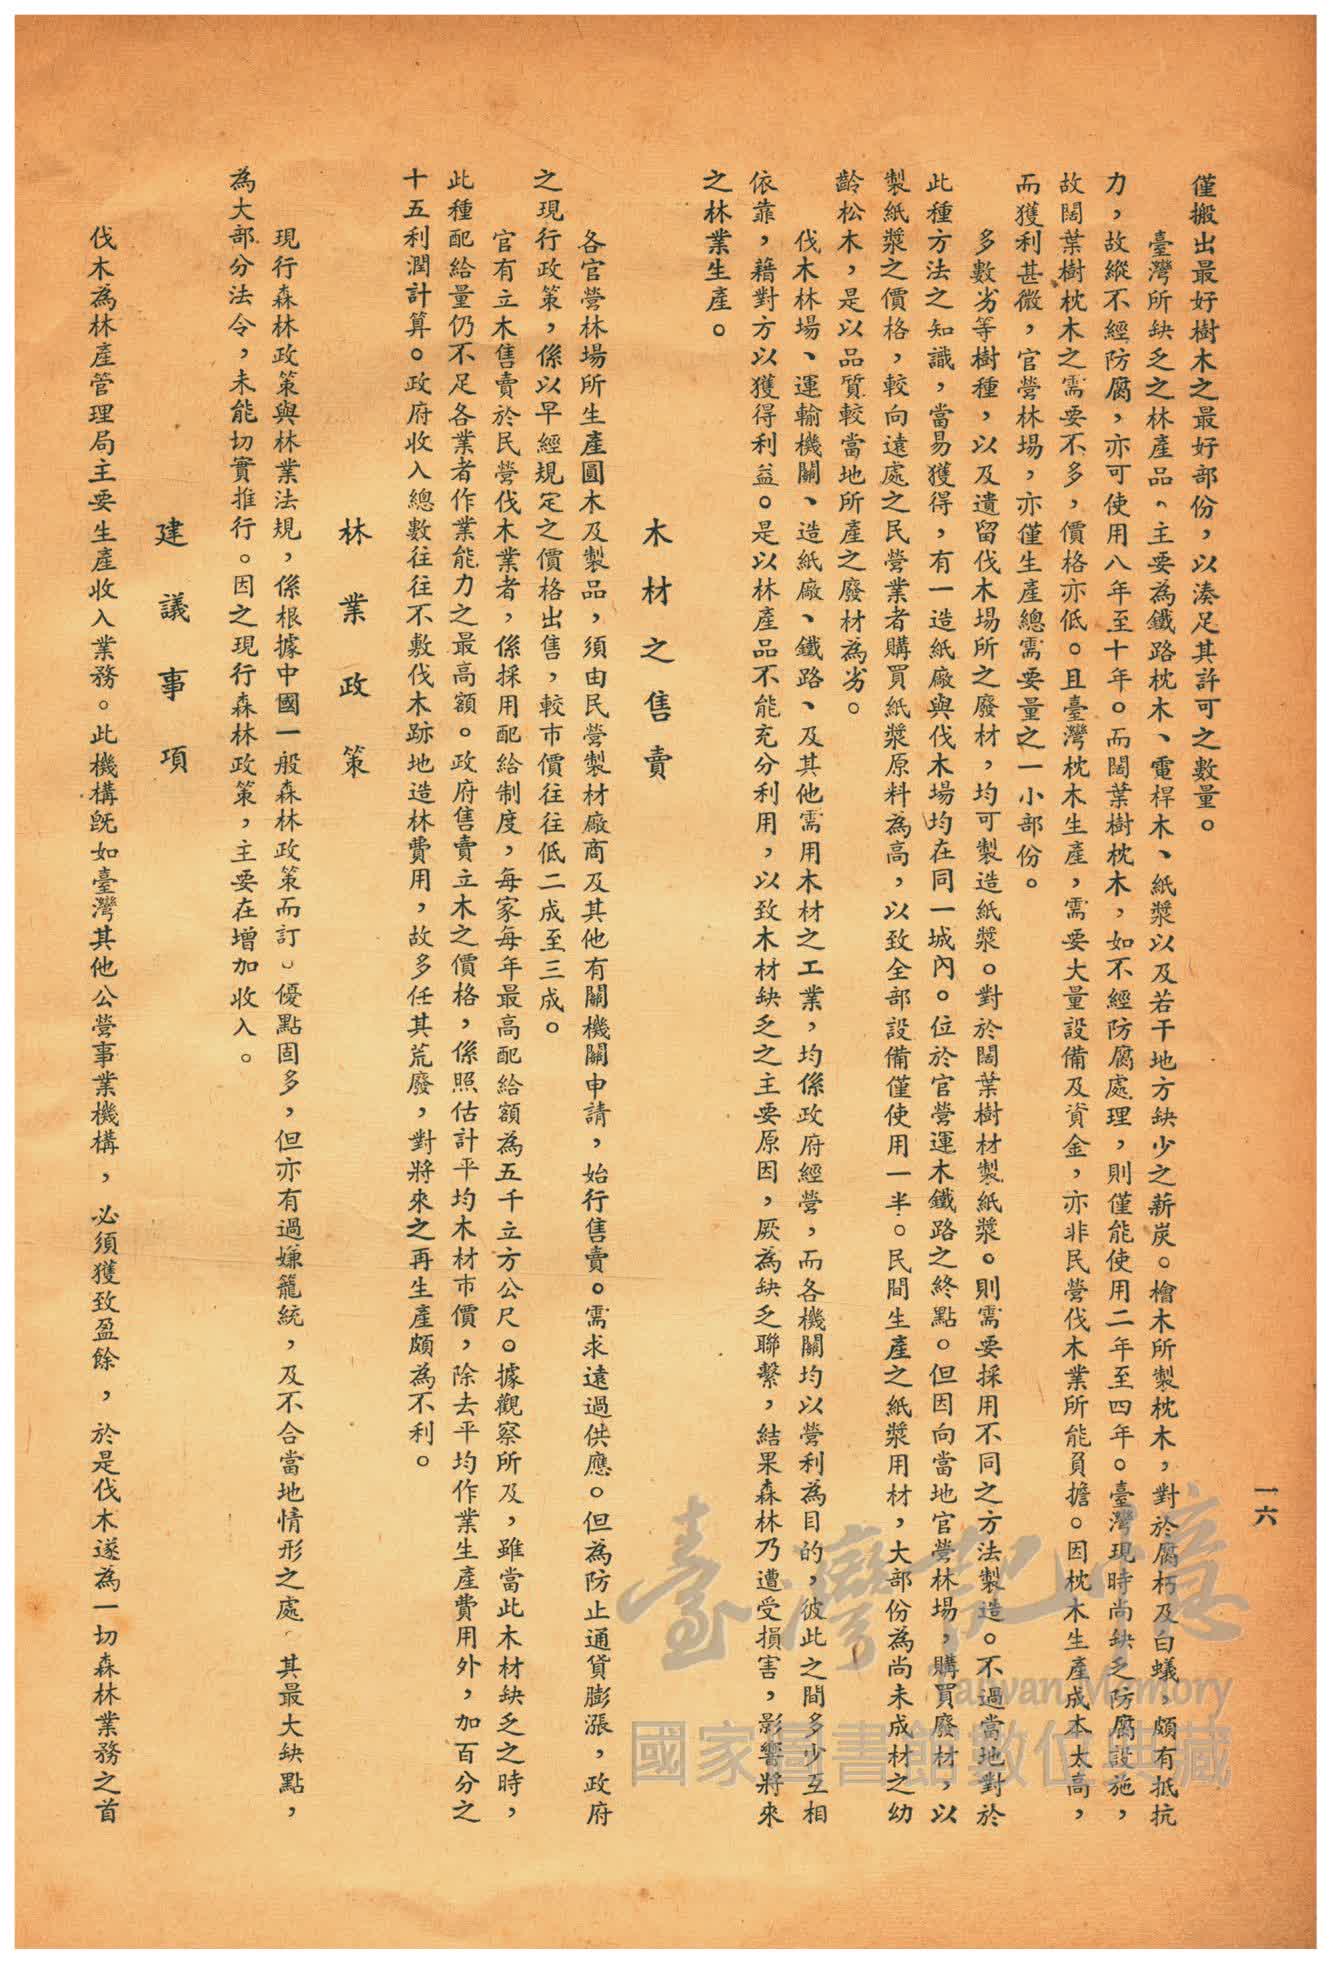 一六
僅搬出最好樹木之最好部份，以湊足其許可之數量。
臺灣所缺乏之林產品，主要為鐵路枕木、電桿木、紙漿以及若干地方缺少之薪炭。檜木所製枕木，對於腐朽及白蟻，頗有抵抗
力，故縱不經防腐，亦可使用八年至十年。而闊葉樹枕木，如不經防腐處理，則僅能使用二年至四年。臺灣現時尚缺乏防腐設施，
故闊葉樹枕木之需要不多，價格亦低。且臺灣枕木生產，需要大量設備及資金，亦非民營伐木業所能負擔。因枕木生產成本太高，
而獲利甚微，官營林場，亦僅生產總需要量之一小部份。
多數劣等樹種，以及遺留伐木場所之廢材，均可製造紙漿。對於闊葉樹材製紙漿。則需要採用不同之方法製造。不過當地對於
此種方法之知識，當易獲得，有一造紙廠與伐木場均在同一城內。位於官營運木鐵路之終點。但因向當地官營林場，購買廢材，以
製紙漿之價格，較向遠處之民營業者購買紙漿原料為高，以致全部設備僅使用一半。民間生產之紙漿用材，大部份為尚未成材之幼
齡松木，是以品質較當地所產之廢材為劣。
伐木林場、運輸機關、造紙廠、鐵路、及其他需用木材之工業，均係政府經營，而各機關均以營利為目的，彼此之間多少互相
依靠，藉對方以獲得利益。是以林產品不能充分利用，以致木材缺乏之主要原因，厥為缺乏聯繫，結果森林乃遭受損害，影響將來
之林業生產。
木材之售賣
各官營林場所生產圓木及製品，須由民營製材廠商及其他有關機關申請，始行售賣。需求遠過供應。但為防止通貨膨漲，政府
之現行政策，係以早經規定之價格出售，較市價往往低二成至三成。
官有立木售賣於民營伐木業者，係採用配給制度，每家每年最高配給額為五千立方公尺。據觀察所及，雖當此木材缺乏之時，
此種配給量仍不足各業者作業能力之最高額。政府售賣立木之價格，係照估計平均木材市價，除去平均作業生產費用外，加百分之
十五利潤計算。政府收入總數往往不敷伐木跡地造林費用，故多任其荒廢，對將來之再生產頗為不利。
林業政策
現行森林政策與林業法規，係根據中國一般森林政策而訂。優點固多，但亦有過嫌籠統，及不合當地情形之處，其最大缺點，
為大部分法令，未能切實推行。因之現行森林政策，主要在增加收入。
建議事項
伐木為林產管理局主要生產收入業務。此機構既如臺灣其他公營事業機構，必須獲致盈餘，於是伐木遂為一切森林業務之首
臺灣記憶
Taiwan Memory
國家圖書館數位典藏